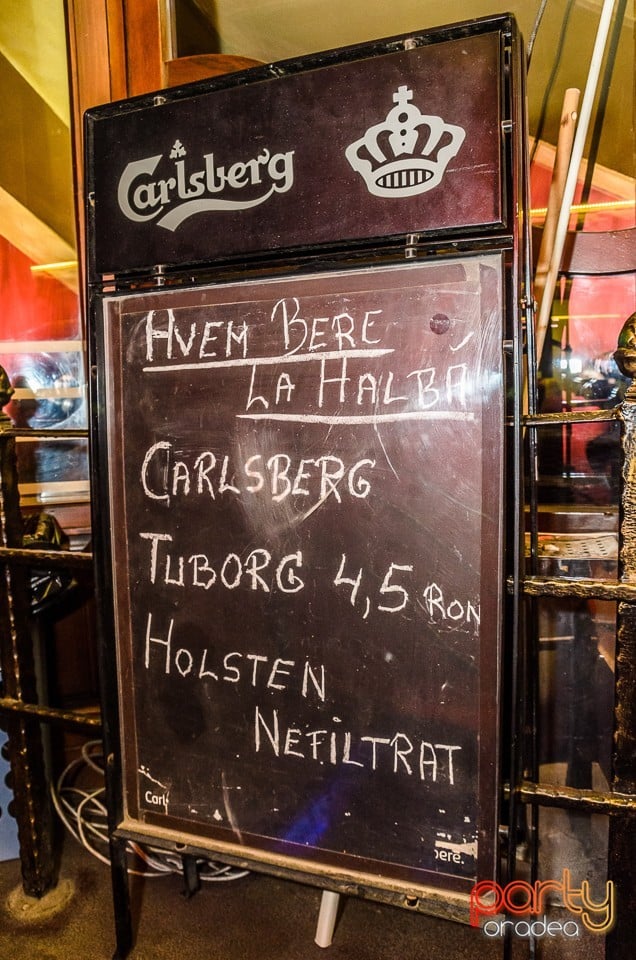 Carlsberg
HVEM BERE
LA HALBĂ
CARLSBERG
TUBORG 4,5 RON
HOLSTEN
NEFILTRAT
Carl
bere.
party
oradea